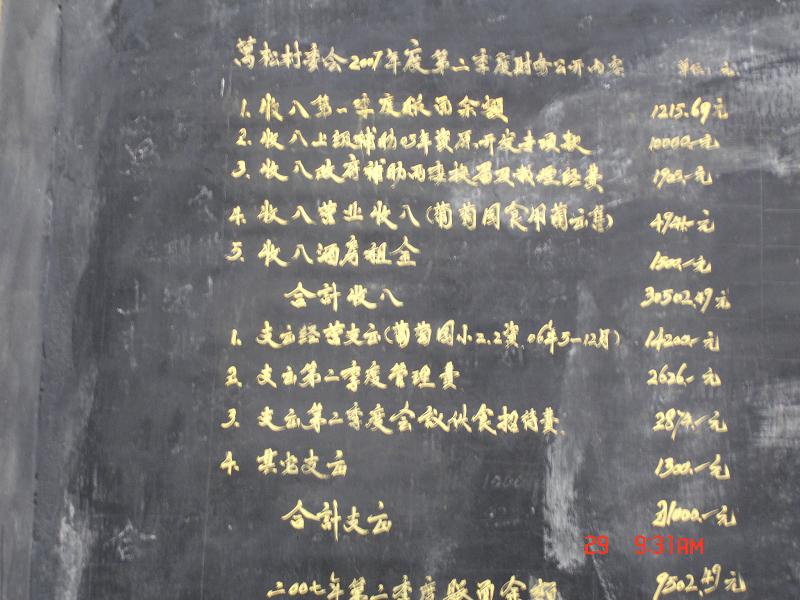 萬松村委会2007年度第二季度财务公开内容 单位:元
1. 收入第一季度账面余额 1215.69元
2. 收入上级补助05年资源开发专项款 10000.-元
3. 收入政府补助两委换届及 经费 1900.-元
4. 收入营业收入(葡萄园食用菌出售) 元
5. 收入酒房租金 1500.-元
合計收入 30502.49元
1. 支出经营支出(葡萄园小工工资.06年5-12月) 14200.-元
2. 支出第二季度管理费 2626.-元
3. 支出第二季度会议伙食招待费 2874.-元
4. 其它支出 1300.-元
合計支出 21000.-元
二00七年第二季度账面余额 9502.49元
29 9:31AM